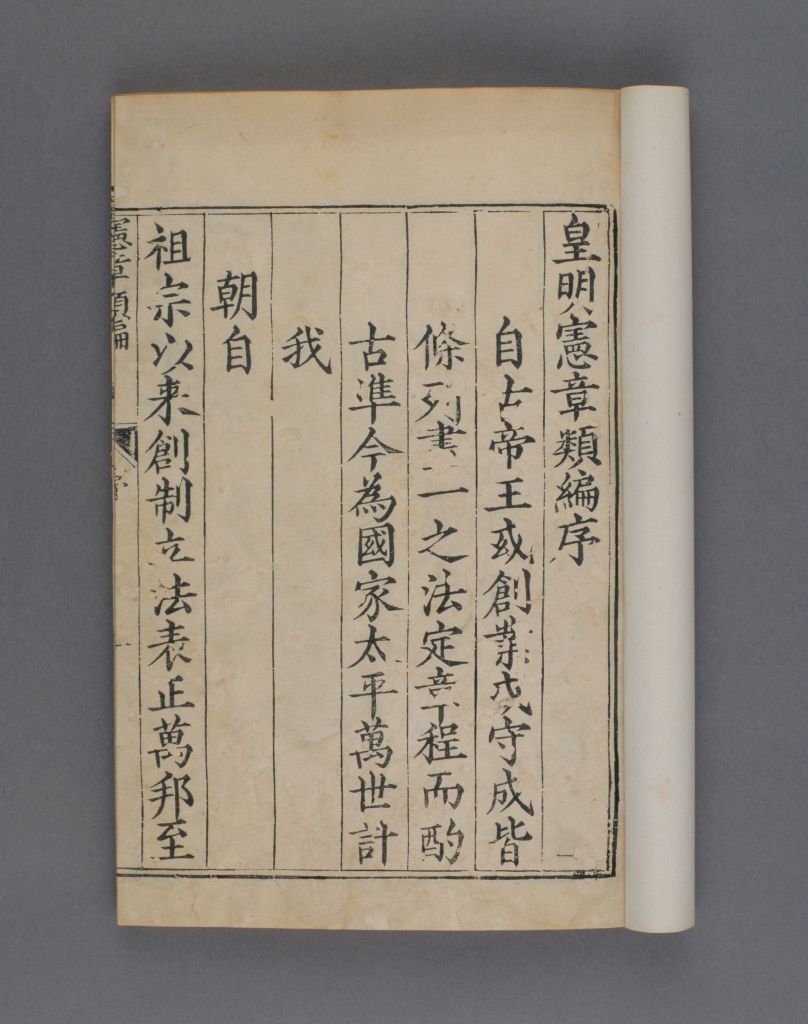 皇明憲章類編序
自古帝王或創業或守成皆
條列畫一之法定章程而酌
古準今為國家太平萬世計
我
朝自
祖宗以来創制立法表正萬邦至
憲章類編